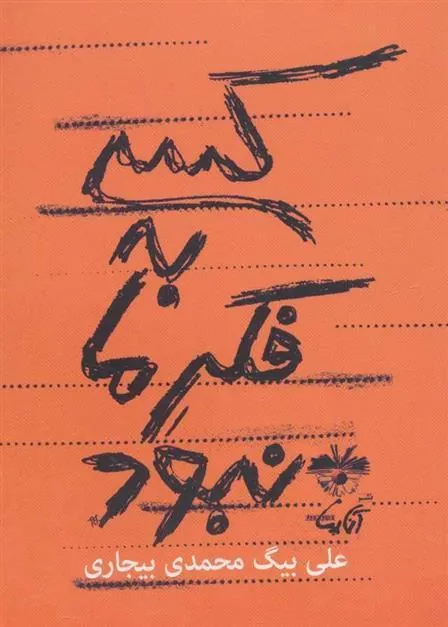 کسی
به
فکر ما
نبود
نشر
آفتابکاران
علی بیگ محمدی بیجاری